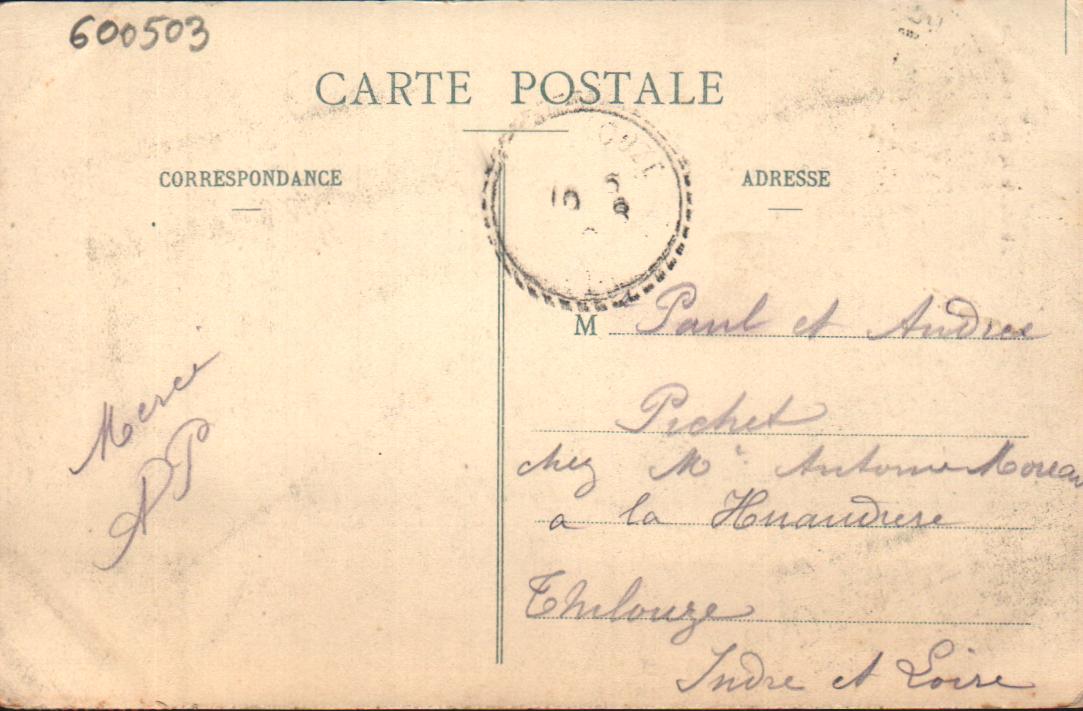 600503
CARTE POSTALE
CORRESPONDANCE
ADRESSE
10 8
M Paul et Andree
Pichet
chez Mr. Antoine Moreau
a la Huaudrere
Thilouze
Indre et Loire
Merci
AP